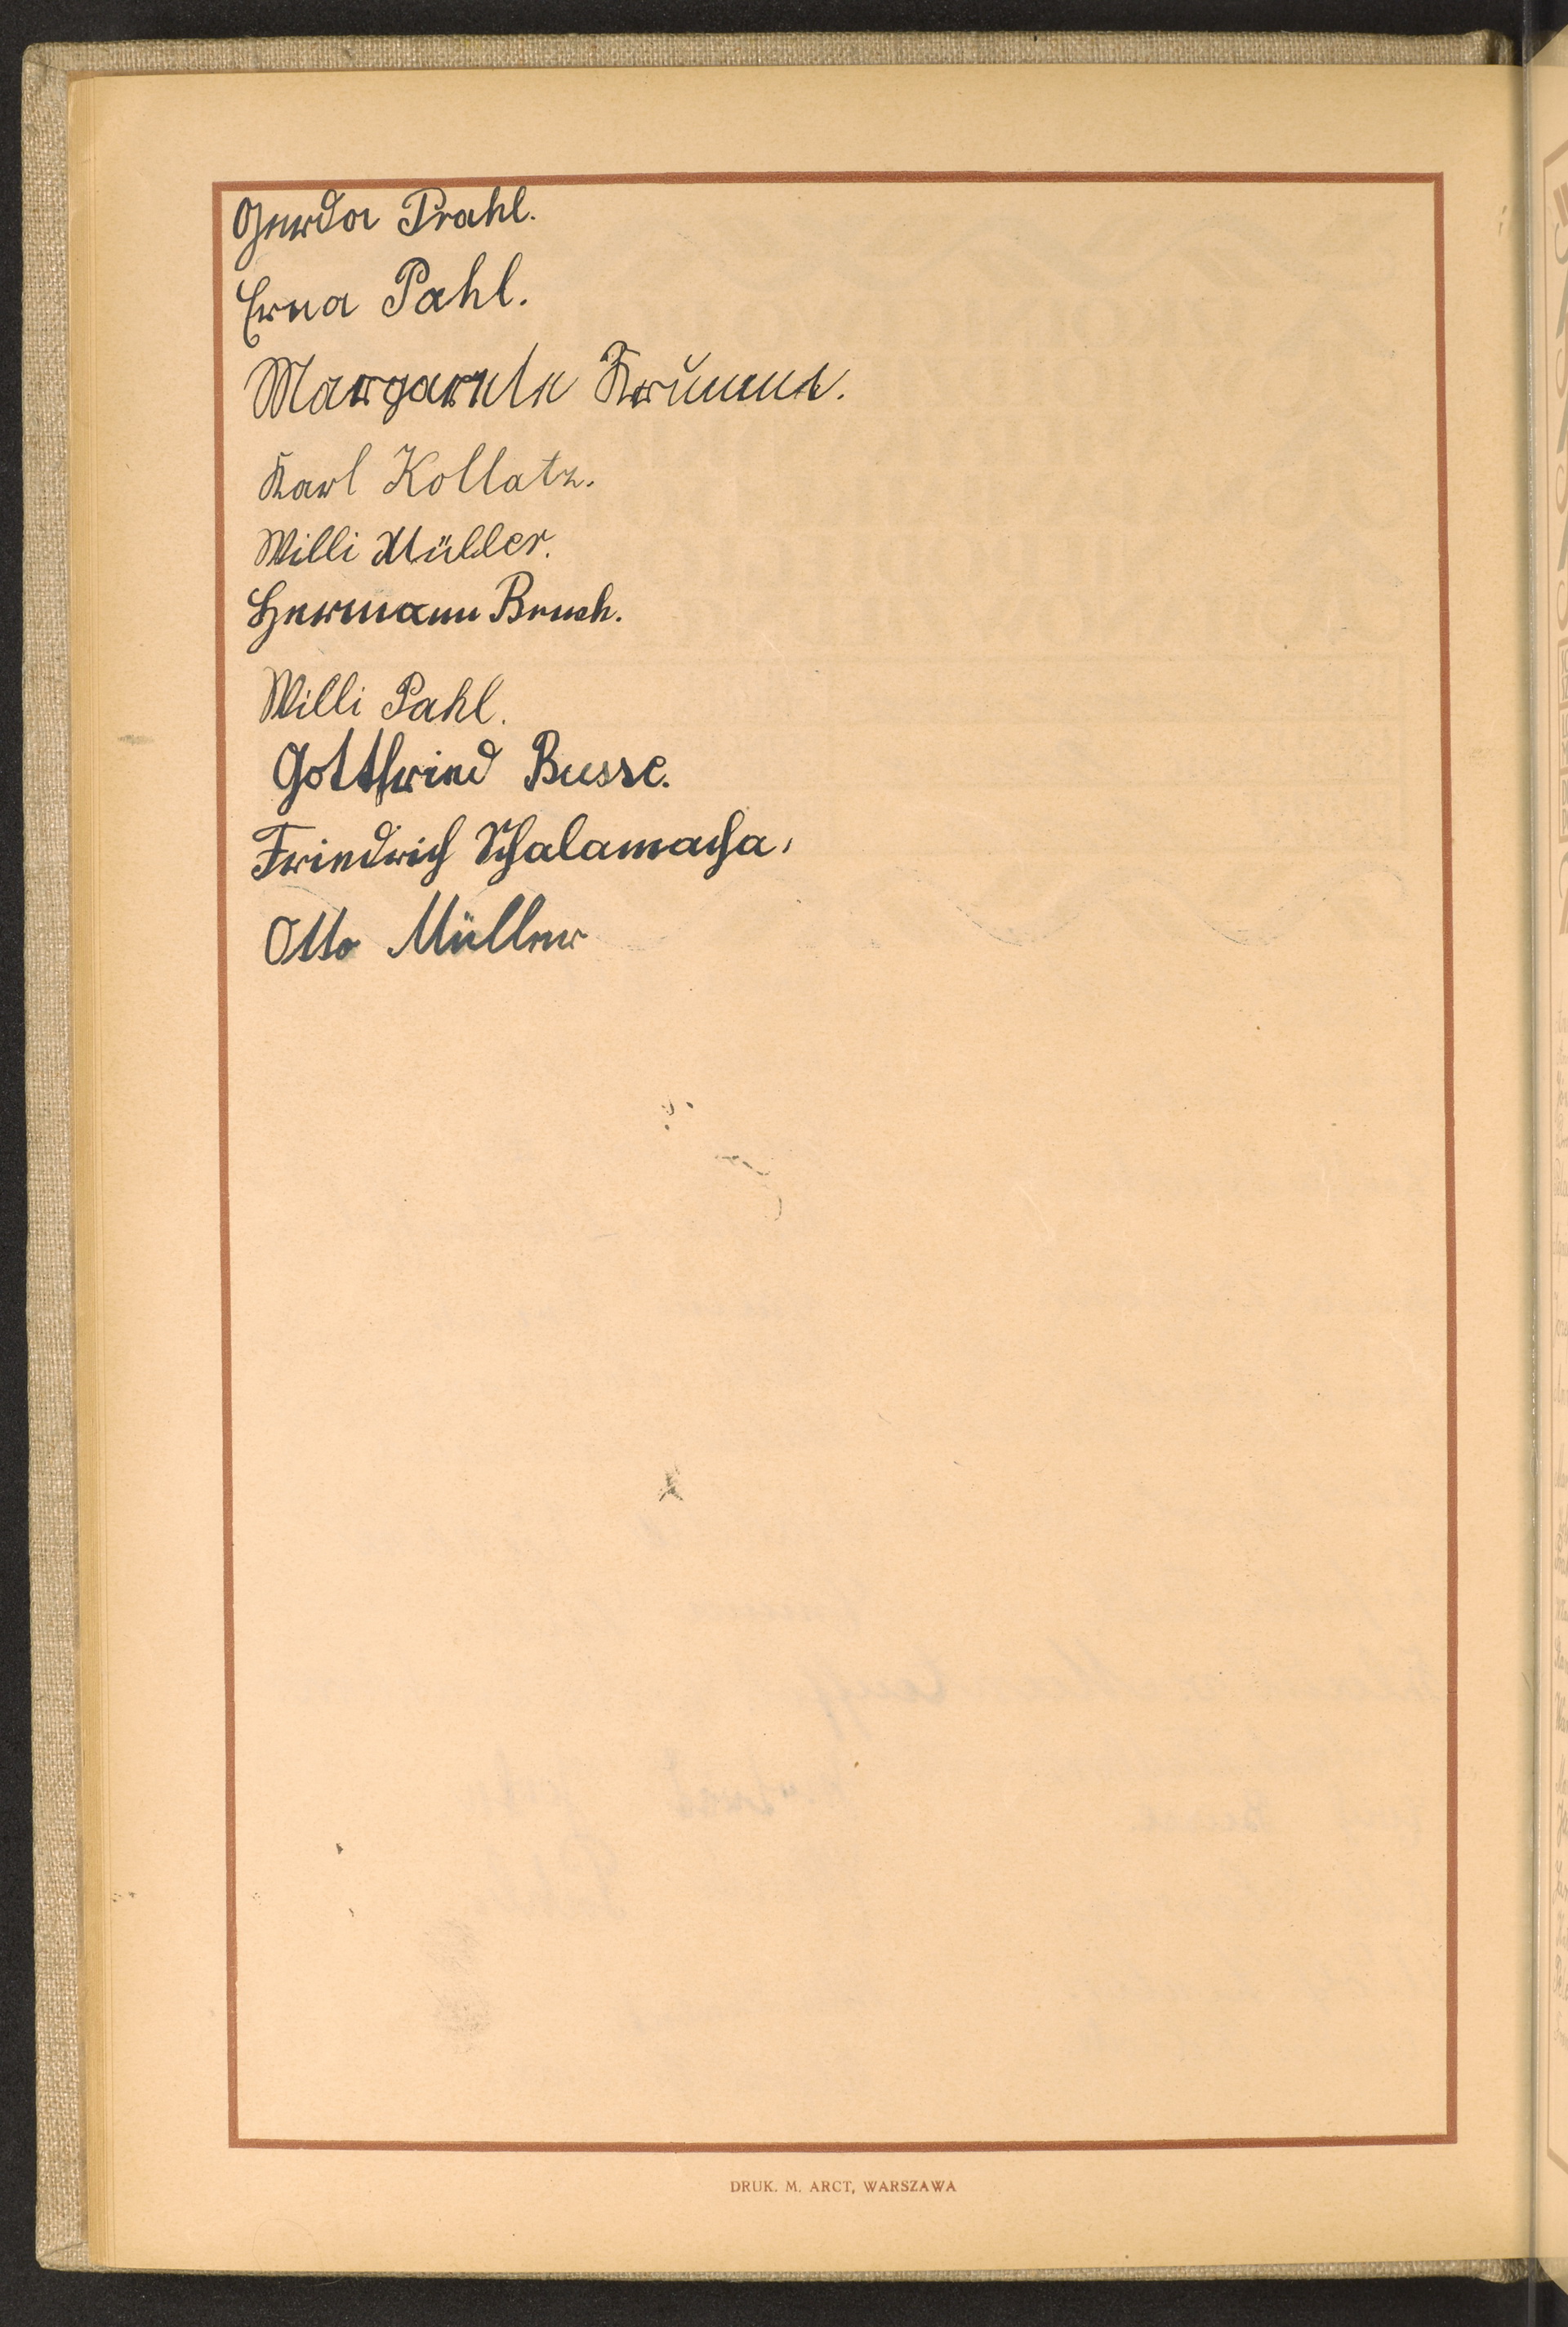 Gerda Prahl.
Erna Pahl.
Margarete Krumm.
Karl Kollatz.
Willi Müller.
Hermann Bruch.
Willi Pahl.
Gottfried Busse.
Friedrich Schalamacha.
Otto Müller
DRUK. M. ARCT, WARSZAWA